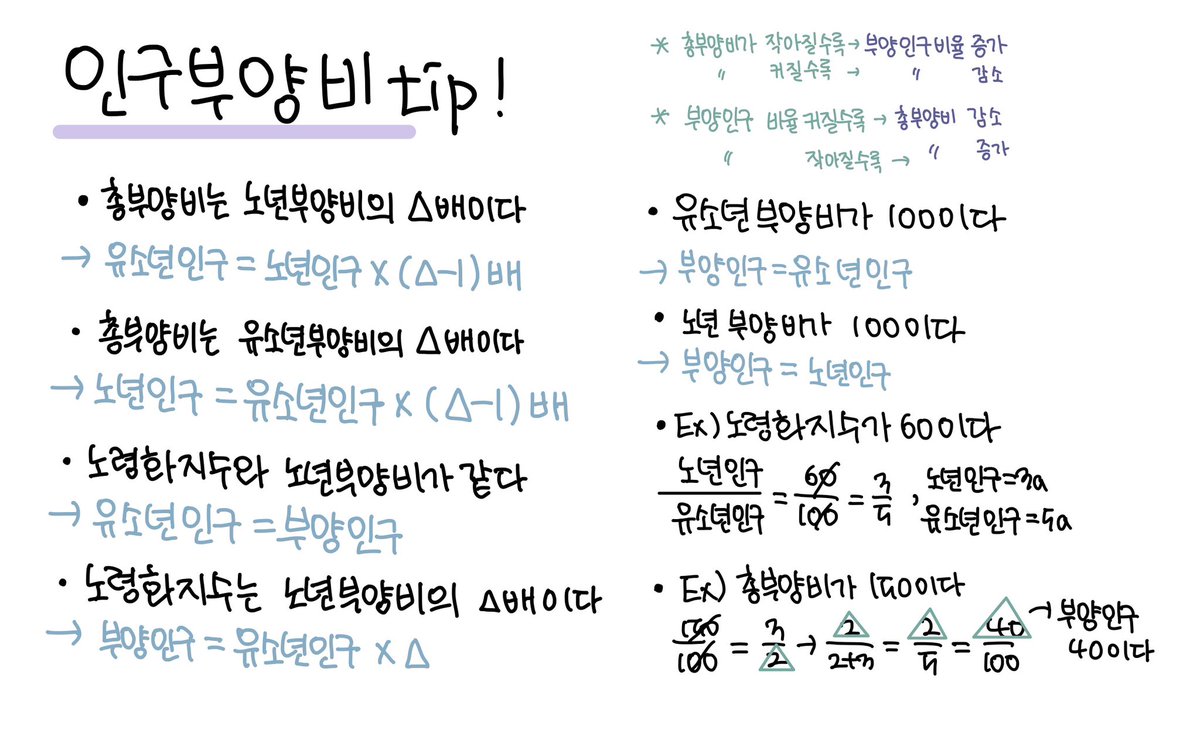 인구부양비 tip!
• 총부양비는 노년부양비의 △배이다
→ 유소년인구 = 노년인구 × (△-1)배
• 총부양비는 유소년부양비의 △배이다
→ 노년인구 = 유소년인구 × (△-1)배
• 노령화지수와 노년부양비가 같다
→ 유소년인구 = 부양인구
• 노령화지수는 노년부양비의 △배이다
→ 부양인구 = 유소년인구 × △
* 총부양비가 작아질수록 → 부양인구비율 증가
〃 커질수록 → 〃 감소
* 부양인구 비율 커질수록 → 총부양비 감소
〃 작아질수록 → 〃 증가
• 유소년부양비가 100이다
→ 부양인구 = 유소년인구
• 노년부양비가 100이다
→ 부양인구 = 노년인구
• Ex) 노령화지수가 60이다
노년인구/유소년인구 = 60/100 = 3/5 , 노년인구=3a
유소년인구=5a
• Ex) 총부양비가 150이다
150/100 = 3/2 → 2/2+3 = 2/5 = 40/100 → 부양인구
40이다